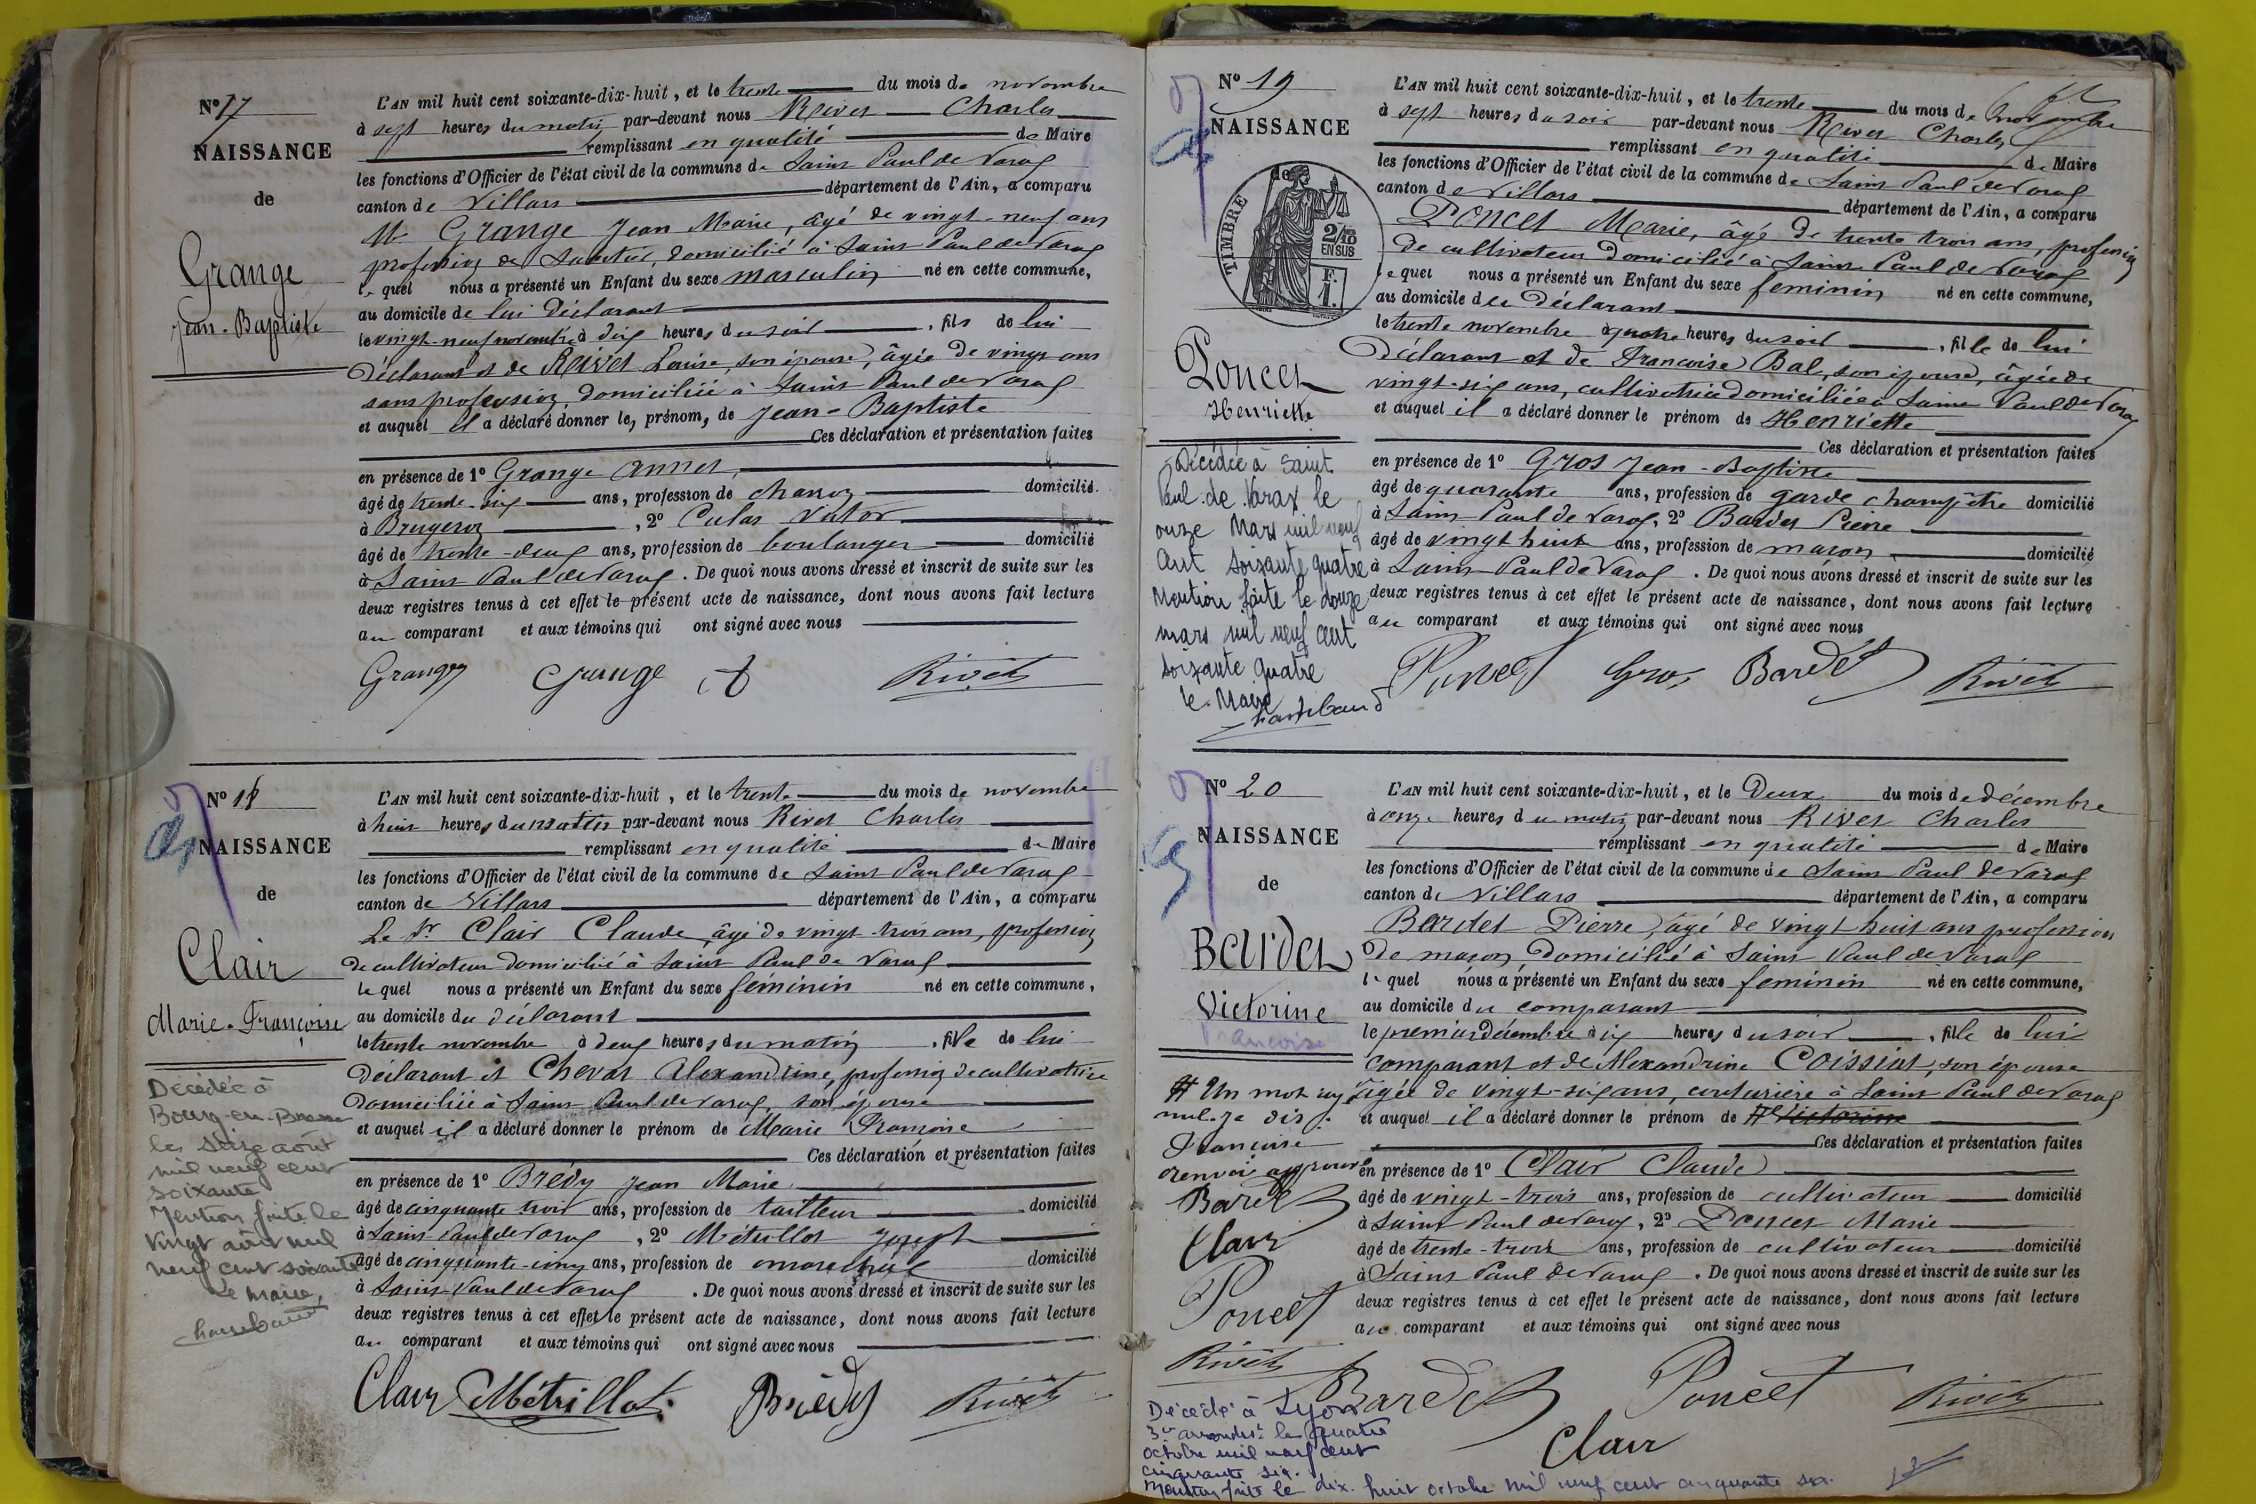 N° 17
NAISSANCE
de
Grange
Jean-Baptiste
L'AN mil huit cent soixante-dix-huit, et le trente du mois de novembre
à sept heures du matin par-devant nous Rivet Charles
remplissant en qualité de Maire
les fonctions d'Officier de l'état civil de la commune de Saint Paul de Varax
canton de Villars département de l'Ain, a comparu
Mr Grange Jean Marie, âgé de vingt-neuf ans
profession de domicilié à Saint Paul de Varax
le quel nous a présenté un Enfant du sexe masculin né en cette commune,
au domicile de lui déclarant
le vingt-neuf novembre à dix heures du soir, fils de lui
déclarant et de Rivet Louise, son épouse, âgée de vingt ans
sans profession, domiciliée à Saint Paul de Varax
et auquel il a déclaré donner les prénoms de Jean-Baptiste
Ces déclaration et présentation faites
en présence de 1° Grange Annet
âgé de trente-six ans, profession de domicilié
à , 2° Culas Victor
âgé de trente-deux ans, profession de boulanger domicilié
à Saint Paul de Varax. De quoi nous avons dressé et inscrit de suite sur les
deux registres tenus à cet effet le présent acte de naissance, dont nous avons fait lecture
au comparant et aux témoins qui ont signé avec nous
Grange Grange Rivet
N° 18
NAISSANCE
de
Clair
Marie-Françoise
Décédée à
Bourg-en-Bresse
le seize août
mil neuf cent
soixante
Mention faite le
vingt août mil
neuf cent soixante
Le Maire,
L'AN mil huit cent soixante-dix-huit, et le trente du mois de novembre
à huit heures du matin par-devant nous Rivet Charles
remplissant en qualité de Maire
les fonctions d'Officier de l'état civil de la commune de Saint Paul de Varax
canton de Villars département de l'Ain, a comparu
Le Sr Clair Claude âgé de vingt-trois ans, profession
de cultivateur domicilié à Saint Paul de Varax
le quel nous a présenté un Enfant du sexe féminin né en cette commune,
au domicile du déclarant
le trente novembre à deux heures du matin, fille de lui
déclarant et Chevat Alexandrine, profession de cultivatrice
domiciliée à Saint Paul de Varax, son épouse
et auquel il a déclaré donner le prénom de Marie Françoise
Ces déclaration et présentation faites
en présence de 1° Brédy Jean Marie
âgé de cinquante trois ans, profession de tailleur domicilié
à Saint Paul de Varax, 2° Métrillot Joseph
âgé de cinquante-cinq ans, profession de maréchal domicilié
à Saint Paul de Varax. De quoi nous avons dressé et inscrit de suite sur les
deux registres tenus à cet effet le présent acte de naissance, dont nous avons fait lecture
au comparant et aux témoins qui ont signé avec nous
Clair Métrillot Brédy Rivet
N° 19
NAISSANCE
de
TIMBRE
2/10
EN SUS
F.
1.
Poncet
Henriette
Décédée à Saint
Paul-de-Varax le
onze Mars mil neuf
cent soixante quatre
Mention faite le douze
mars mil neuf cent
soixante quatre
le Maire
L'AN mil huit cent soixante-dix-huit, et le trente du mois de novembre
à sept heures du soir par-devant nous Rivet Charles
remplissant en qualité de Maire
les fonctions d'Officier de l'état civil de la commune de Saint Paul de Varax
canton de Villars département de l'Ain, a comparu
Poncet Marie, âgé de trente trois ans, profession
de cultivateur domicilié à Saint Paul de Varax
le quel nous a présenté un Enfant du sexe feminin né en cette commune,
au domicile du Déclarant
le trente novembre à quatre heures du soir, fille de lui
Déclarant et de Francoise Bal, son épouse, âgée de
vingt-six ans, cultivatrice domiciliée à Saint Paul de Varax
et auquel il a déclaré donner le prénom de Henriette
Ces déclaration et présentation faites
en présence de 1° Gros Jean-Baptiste
âgé de quarante ans, profession de garde champêtre domicilié
à Saint Paul de Varax, 2° Bardet Pierre
âgé de vingt huit ans, profession de maçon domicilié
à Saint Paul de Varax. De quoi nous avons dressé et inscrit de suite sur les
deux registres tenus à cet effet le présent acte de naissance, dont nous avons fait lecture
au comparant et aux témoins qui ont signé avec nous
Poncet Gros Bardet Rivet
N° 20
NAISSANCE
de
Bardet
Victorine
Francoise
# Un mot rayé
nul. Je dis:
Francoise
renvoi approuvé
Bardet
Clair
Poncet
Rivet
L'AN mil huit cent soixante-dix-huit, et le Deux du mois de décembre
à onze heures du matin par-devant nous Rivet Charles
remplissant en qualité de Maire
les fonctions d'Officier de l'état civil de la commune de Saint Paul de Varax
canton de Villars département de l'Ain, a comparu
Bardet Pierre, âgé de vingt huit ans profession
de maçon domicilié à Saint Paul de Varax
le quel nous a présenté un Enfant du sexe feminin né en cette commune,
au domicile du comparant
le premier décembre à six heures du soir, fille de lui
comparant et de Alexandrine Coissiat, son épouse
âgée de vingt-six ans, couturière à Saint Paul de Varax
et auquel il a déclaré donner le prénom de # Victorine
Ces déclaration et présentation faites
en présence de 1° Clair Claude
âgé de vingt-trois ans, profession de cultivateur domicilié
à Saint Paul de Varax, 2° Poncet Marie
âgé de trente-trois ans, profession de cultivateur domicilié
à Saint Paul de Varax. De quoi nous avons dressé et inscrit de suite sur les
deux registres tenus à cet effet le présent acte de naissance, dont nous avons fait lecture
au comparant et aux témoins qui ont signé avec nous
Bardet Poncet Rivet
Clair
Décédé à Lyon
3e arrondist le quatre
octobre mil neuf cent
cinquante six.
Mention faite le dix-huit octobre mil neuf cent cinquante six.